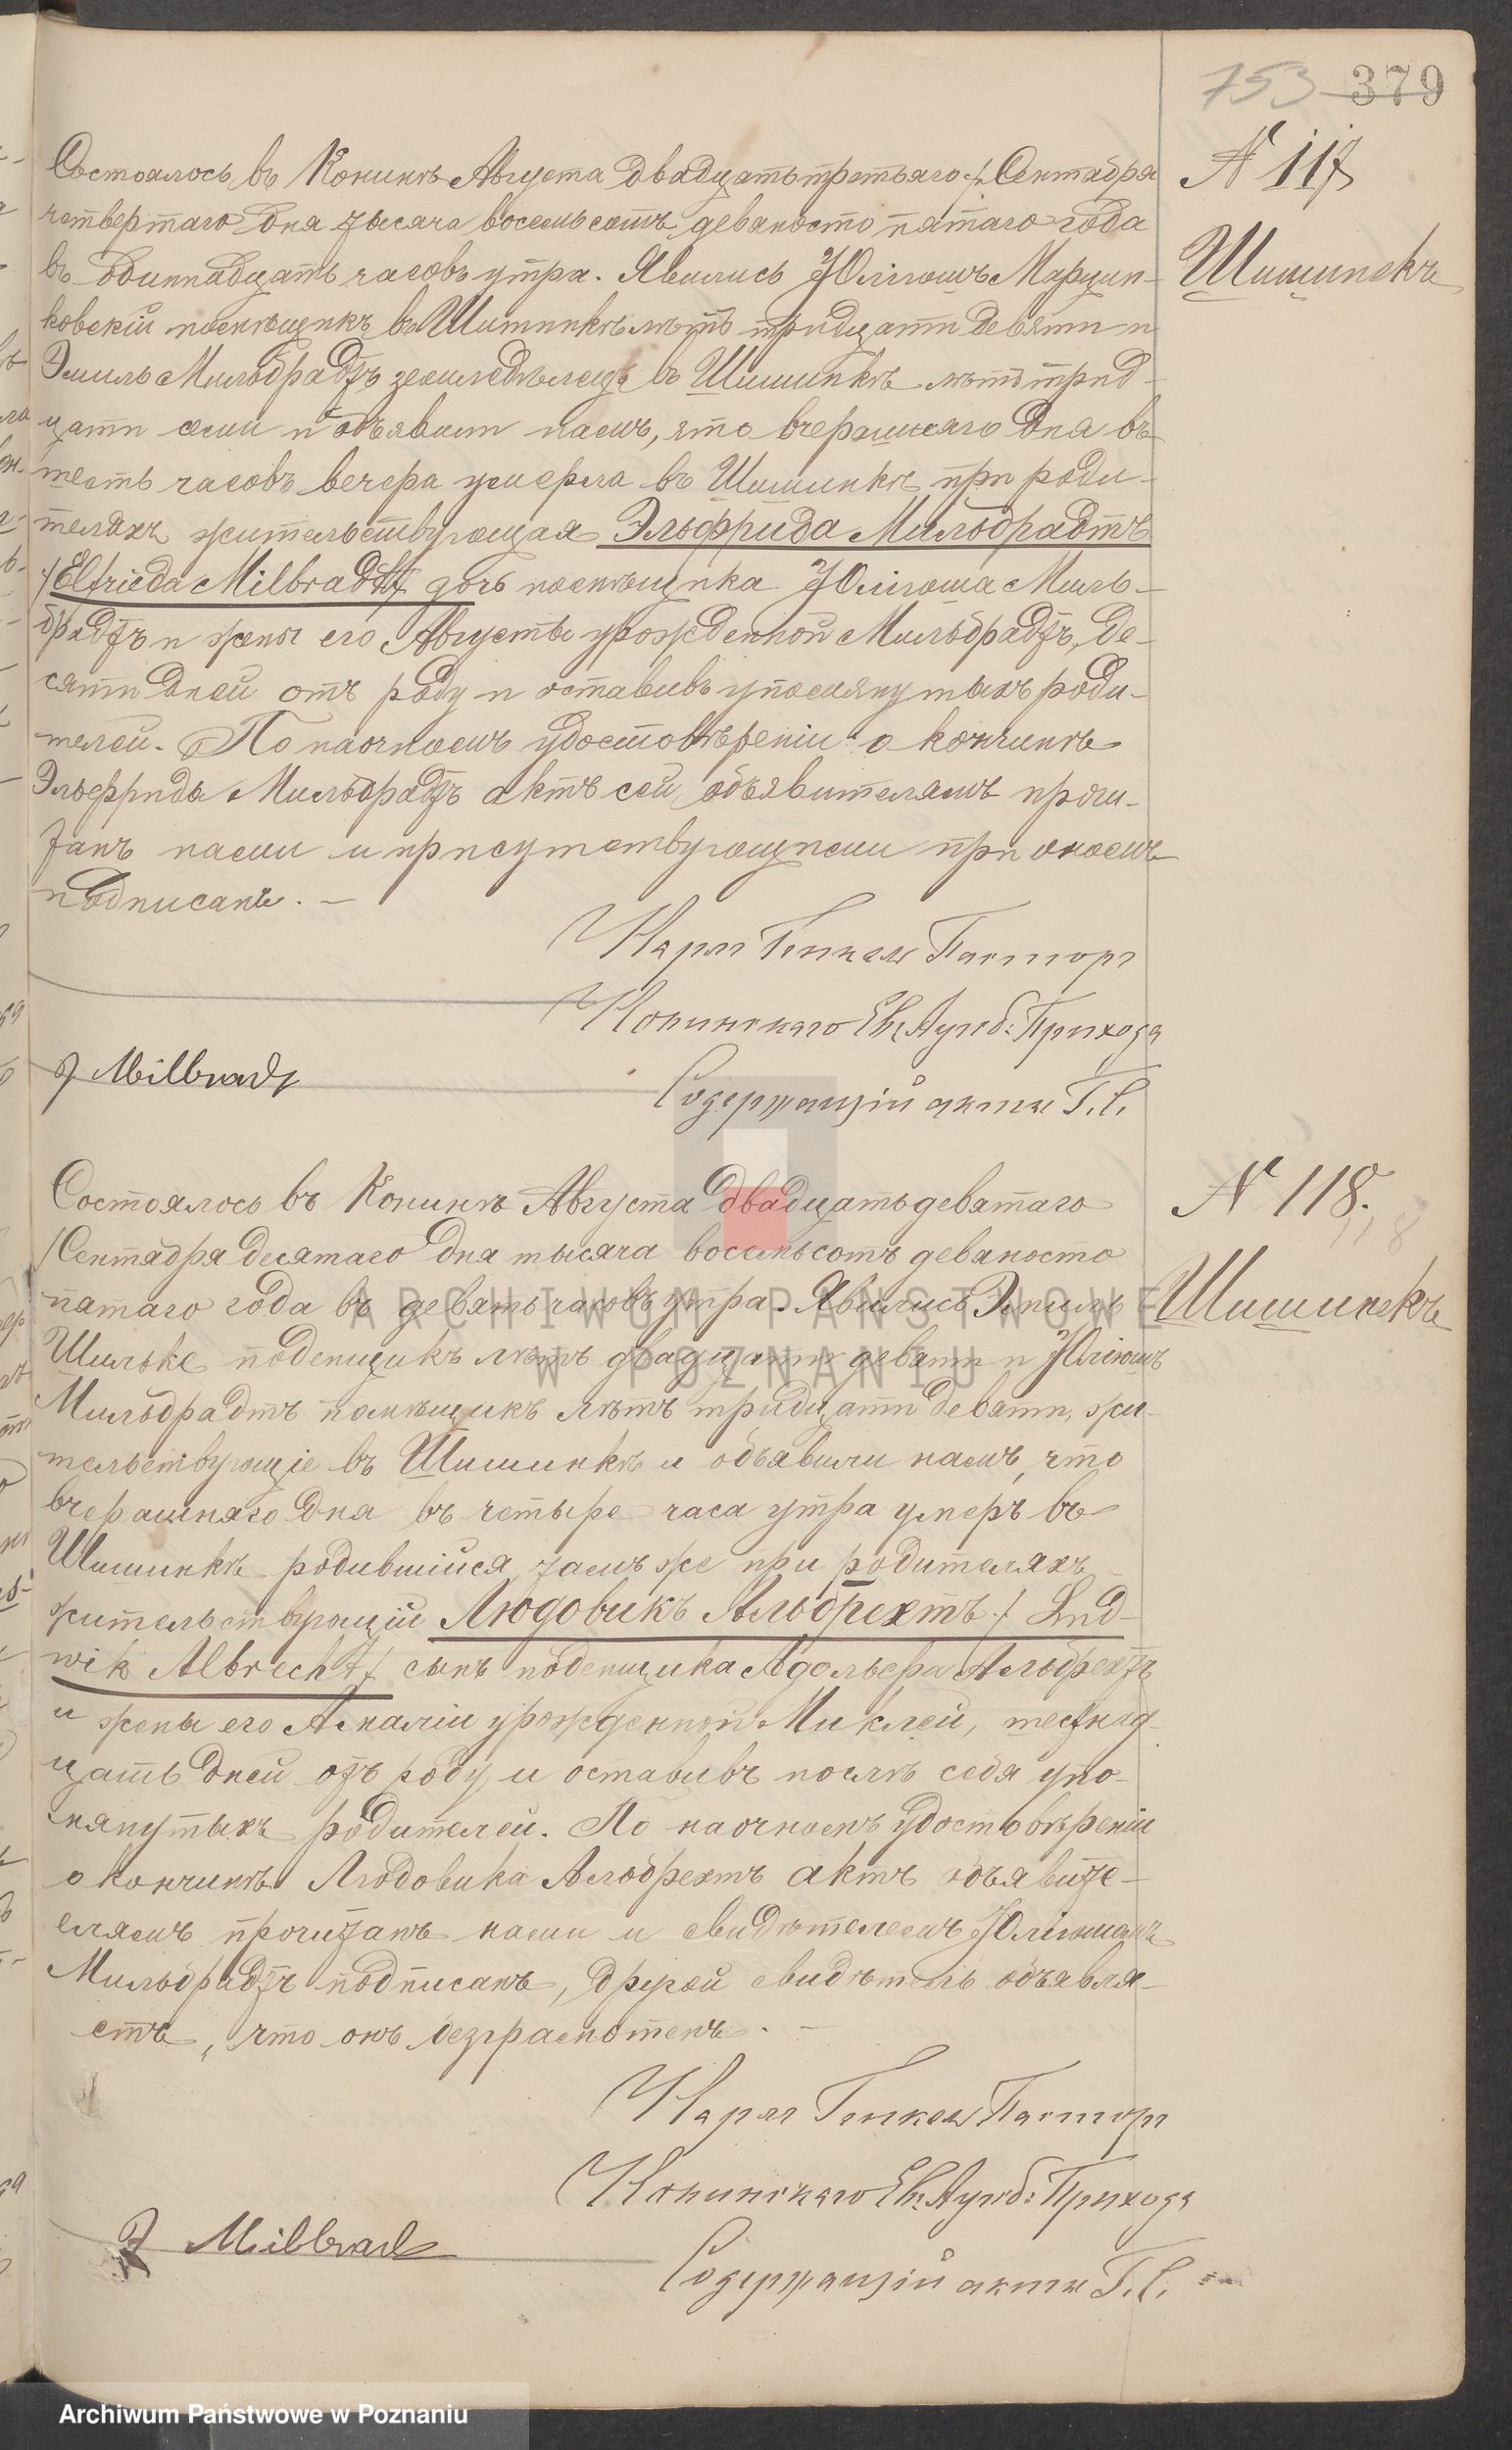 753 379
N 117
Шишинекъ
Состоялось въ Конинѣ Августа двадцать третьяго /: Сентября
четвертаго дня тысяча восемьсотъ девяносто пятаго года
въ одиннадцать часовъ утра. Явились Юліюшъ Марцин-
ковскій помѣщикъ въ Шишинкѣ лѣтъ тридцати девяти и
Эмиль Мильбрадтъ земледѣлецъ въ Шишинкѣ лѣтъ трид-
цати семи и объявили намъ, что вчерашняго дня въ
шесть часовъ вечера умерла въ Шишинкѣ при роди-
теляхъ жительствующая Эльфрида Мильбрадтъ
/Elfrieda Milbradt/ дочь помѣщика Юліюша Миль-
брадтъ и жены его Августы урожденной Мильбрадтъ, де-
сяти дней отъ роду и оставивъ упомянутыхъ роди-
телей. По наочномъ удостовѣреніи о кончинѣ
Эльфриды Мильбрадтъ актъ сей объявителямъ прочи-
танъ нами и присутствующими при ономъ
подписанъ. —
Карл Генкель Пастор
Конинскаго Ев. Аугсб: Прихода
J Milbradt
Содержащій акты Г. С.
N 118.
118
Шишинекъ
Состоялось въ Конинѣ Августа двадцать девятаго
/Сентября десятаго дня тысяча восемьсотъ девяносто
пятаго года въ девять часовъ утра. Явились Эмиль
Шильке поденщикъ лѣтъ двадцати девяти и Юліюшъ
Мильбрадтъ помѣщикъ лѣтъ тридцати девяти, жи-
тельствующіе въ Шишинкѣ и объявили намъ, что
вчерашняго дня въ четыре часа утра умеръ въ
Шишинкѣ родившійся тамъ же при родителяхъ
жительствующій Людовикъ Альбрехтъ / Lud-
wik Albrecht / сынъ поденщика Адольфа Альбрехтъ
и жены его Амаліи урожденной Миклей, шестнад-
цать дней отъ роду и оставивъ послѣ себя упо-
мянутыхъ родителей. По наочномъ удостовѣреніи
о кончинѣ Людовика Альбрехтъ актъ объявите-
лямъ прочитанъ нами и свидѣтелемъ Юліюшомъ
Мильбрадтъ подписанъ, другой свидѣтель объявля-
етъ, что онъ безграмотенъ. —
Карл Генкель Пастор
Конинскаго Ев. Аугсб: Прихода
J Milbradt
Содержащій акты Г. С.
ARCHIWUM PAŃSTWOWE
W POZNANIU
Archiwum Państwowe w Poznaniu